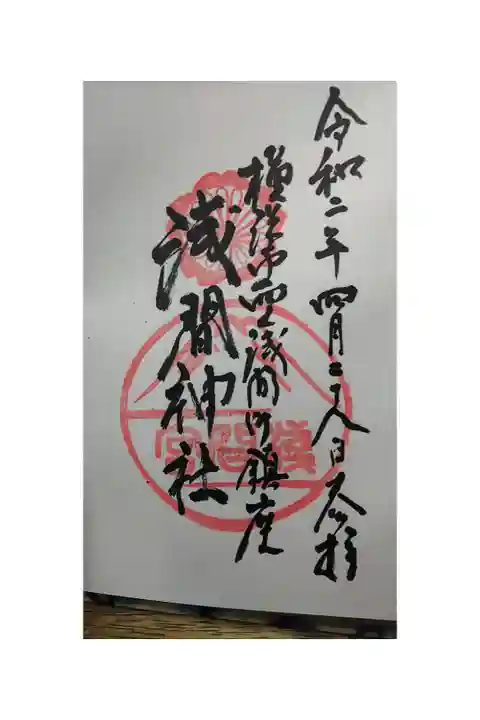 令和二年四月二八日参拝
横浜市西区浅間町鎮座
浅間神社